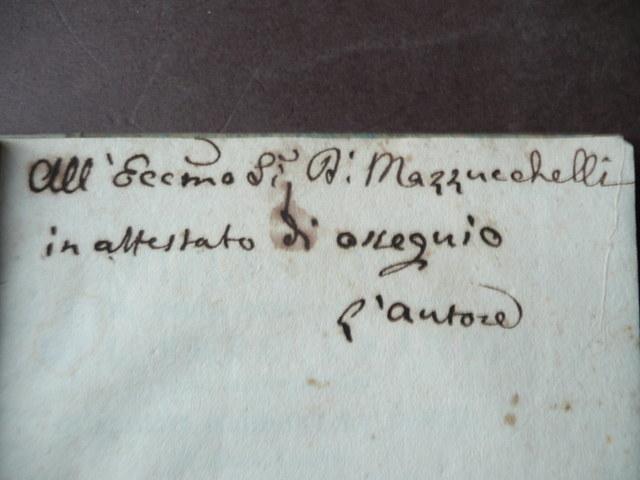 All' Eccmo Sigr Di Mazzucchelli
in attestato di ossequio
L'autore